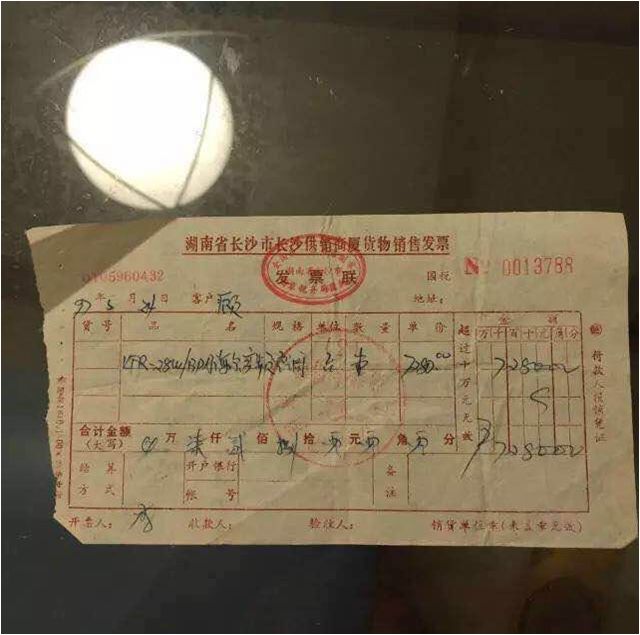 湖南省长沙市长沙供销商厦货物销售发票
发票联
0105960432
国税 № 0013788
97年5月24日 客户 顾 地址:
货号 品名 规格 单位 数量 单价 超过十万元无效 金额 万千百十元角分
KFR-28W/BP 海尔变频空调 台 7280.00 728000
付款人报销凭证
合计金额(大写) 万 柒 仟 贰 佰 捌 拾 元 角 分 728000
结算方式 开户银行 帐号 备注
开票人: 李 收款人: 验收人: 销货单位章(未盖章无效)